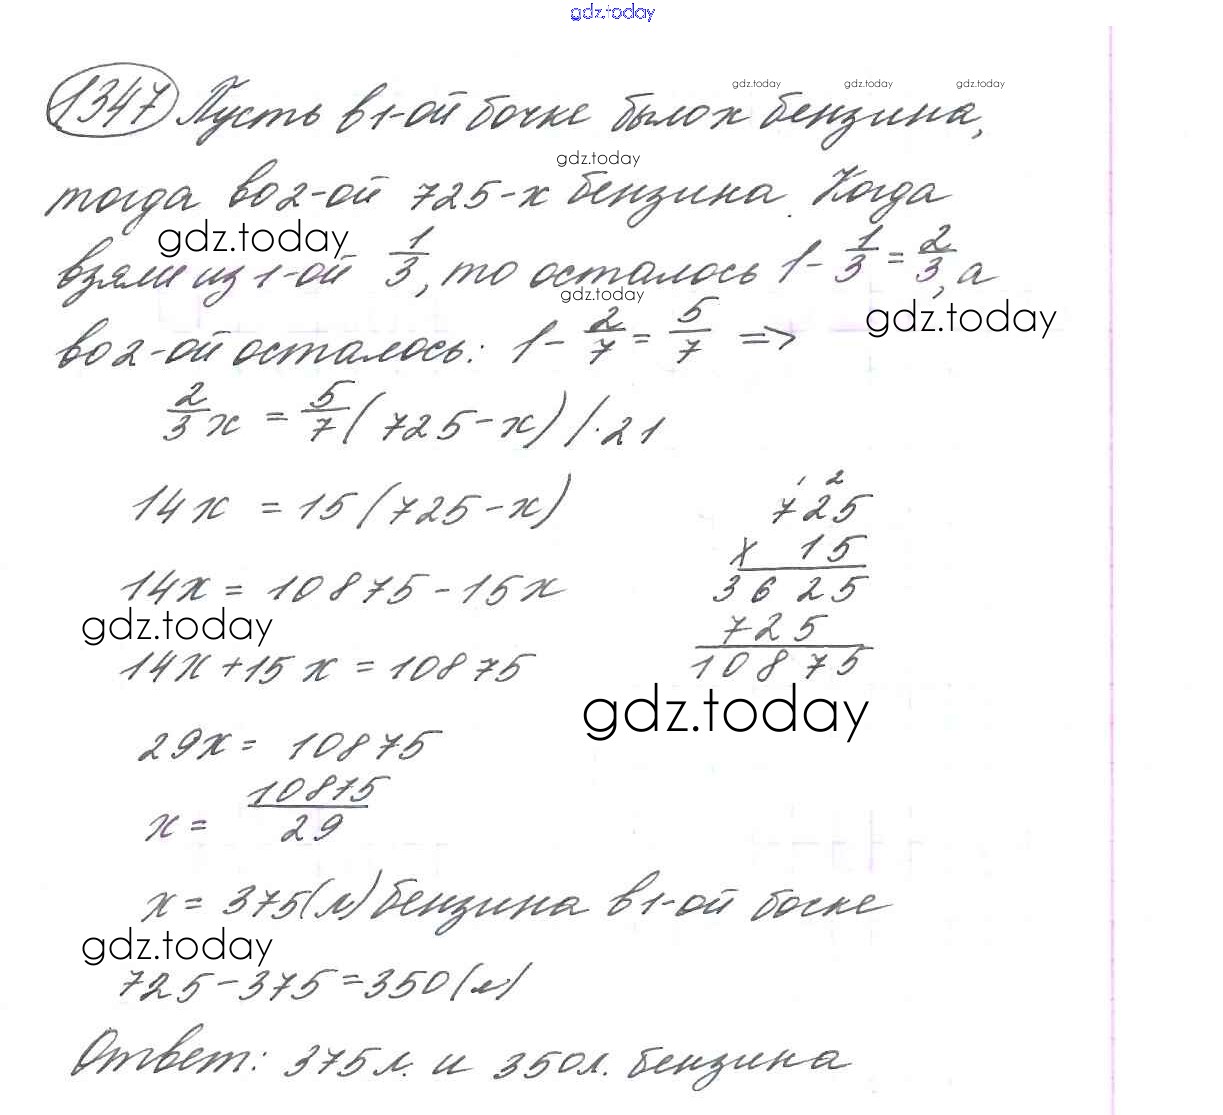 gdz.today
1347 Пусть в 1-ой бочке было x бензина,
gdz.today gdz.today gdz.today
gdz.today
тогда во 2-ой 725-x бензина. Когда
gdz.today
взяли из 1-ой 1/3, то осталось 1 - 1/3 = 2/3, а
gdz.today
gdz.today
во 2-ой осталось: 1 - 2/7 = 5/7 =>
2/3 x = 5/7 (725 - x) | · 21
14x = 15 (725 - x)
14x = 10875 - 15x
gdz.today
14x + 15x = 10875
1 2
725
x 15
3625
725
10875
gdz.today
29x = 10875
x = 10875/29
x = 375 (л) бензина в 1-ой боске
gdz.today
725 - 375 = 350 (л)
Ответ: 375 л. и 350 л. бензина